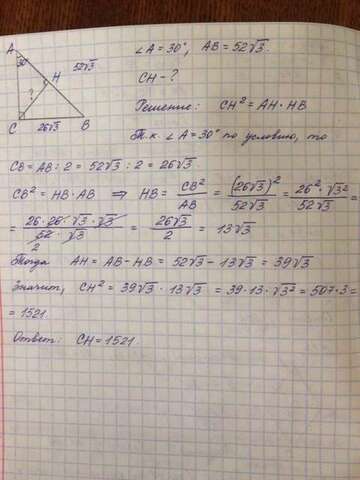 A
30°
H
52√3
?
C
26√3
B
∠A = 30°, AB = 52√3.
CH - ?
Решение: CH² = AH · HB
Т.к. ∠A = 30° по условию, то
CB = AB : 2 = 52√3 : 2 = 26√3.
CB² = HB · AB ⇒ HB = CB²/AB = (26√3)²/52√3 = 26² · √3²/52√3 =
= 26 · 26 · √3 · √3/52 · √3 = 26√3/2 = 13√3
2
Тогда AH = AB - HB = 52√3 - 13√3 = 39√3
Значит, CH² = 39√3 · 13√3 = 39 · 13 · √3² = 507 · 3 =
= 1521.
Ответ: CH = 1521.